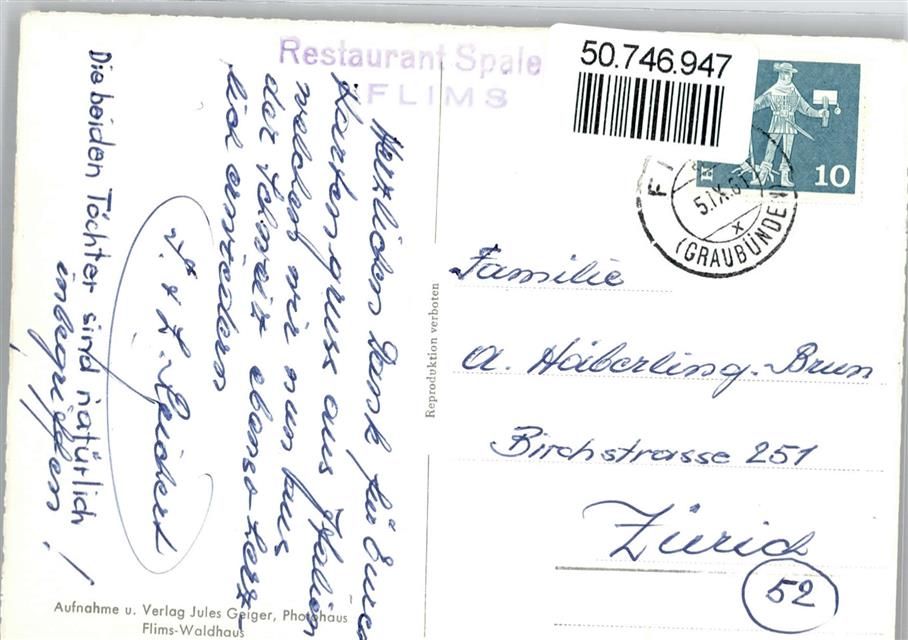 Restaurant Spale
FLIMS
50.746.947
10
5.IX.61
(GRAUBÜNDEN)
Herzlichen Dank für Eure
Kartengruss aus Italien
welchen wir nun aus
der Schweiz ebenso herz-
lich erwiedern
Die beiden Töchter sind natürlich
inbegriffen!
Reproduktion verboten
Familie
A. Häberling-Brun
Birchstrasse 251
Zürich
52
Aufnahme u. Verlag Jules Geiger, Photohaus
Flims-Waldhaus